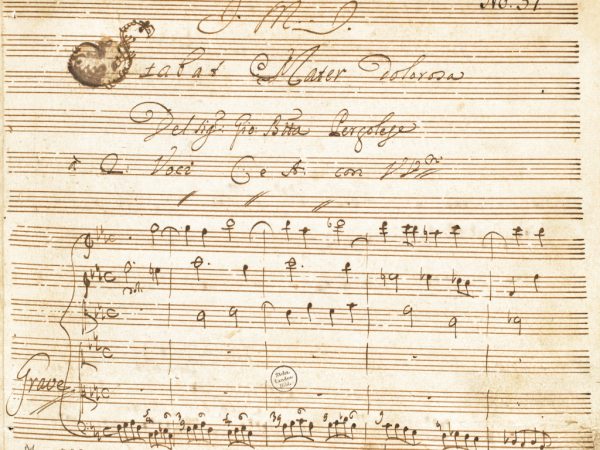 No. 31
J. M. J.
Stabat Mater dolorosa
Del Sigr. Gio Btta Pergolese
à 2 Voci C e A. con VVni
Grave